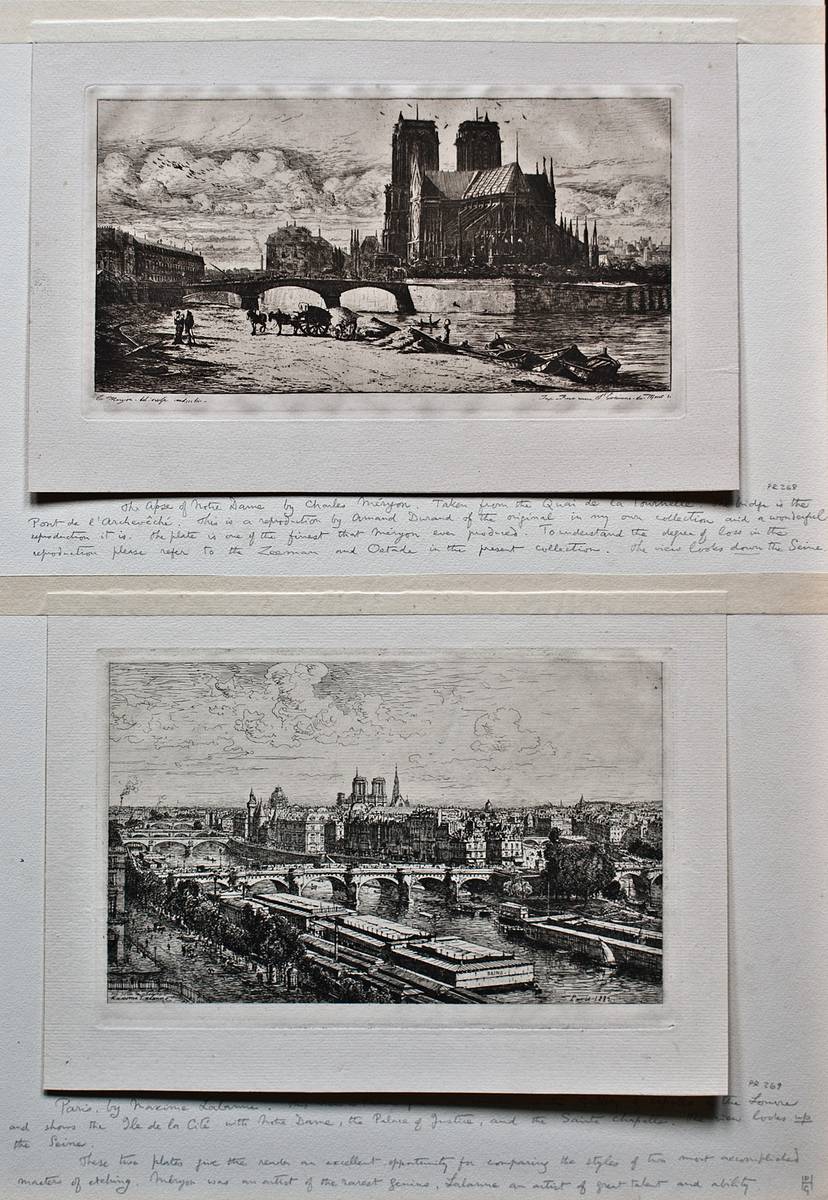 C. Meryon del. sculp.
Imp. Rue neuve St Etienne-du-Mont
PR 268
The Apse of Notre Dame by Charles Méryon. Taken from the Quai de la Tournelle bridge is the
Pont de l'Archevêché. This is a reproduction by Amand Durand of the original in my own collection and a wonderful
reproduction it is. The plate is one of the finest that Méryon ever produced. To understand the degree of loss in the
reproduction please refer to the Zeeman and Ostade in the present collection. The view looks down the Seine
BAINS
Maxime Lalanne
Paris
PR 269
Paris, by Maxime Lalanne. the Louvre
and shows the Ile de la Cité with Notre Dame, the Palace of Justice, and the Sainte Chapelle. The view looks up
the Seine.
These two plates give the reader an excellent opportunity for comparing the styles of two most accomplished
masters of etching. Méryon was an artist of the rarest genius, Lalanne an artist of great talent and ability